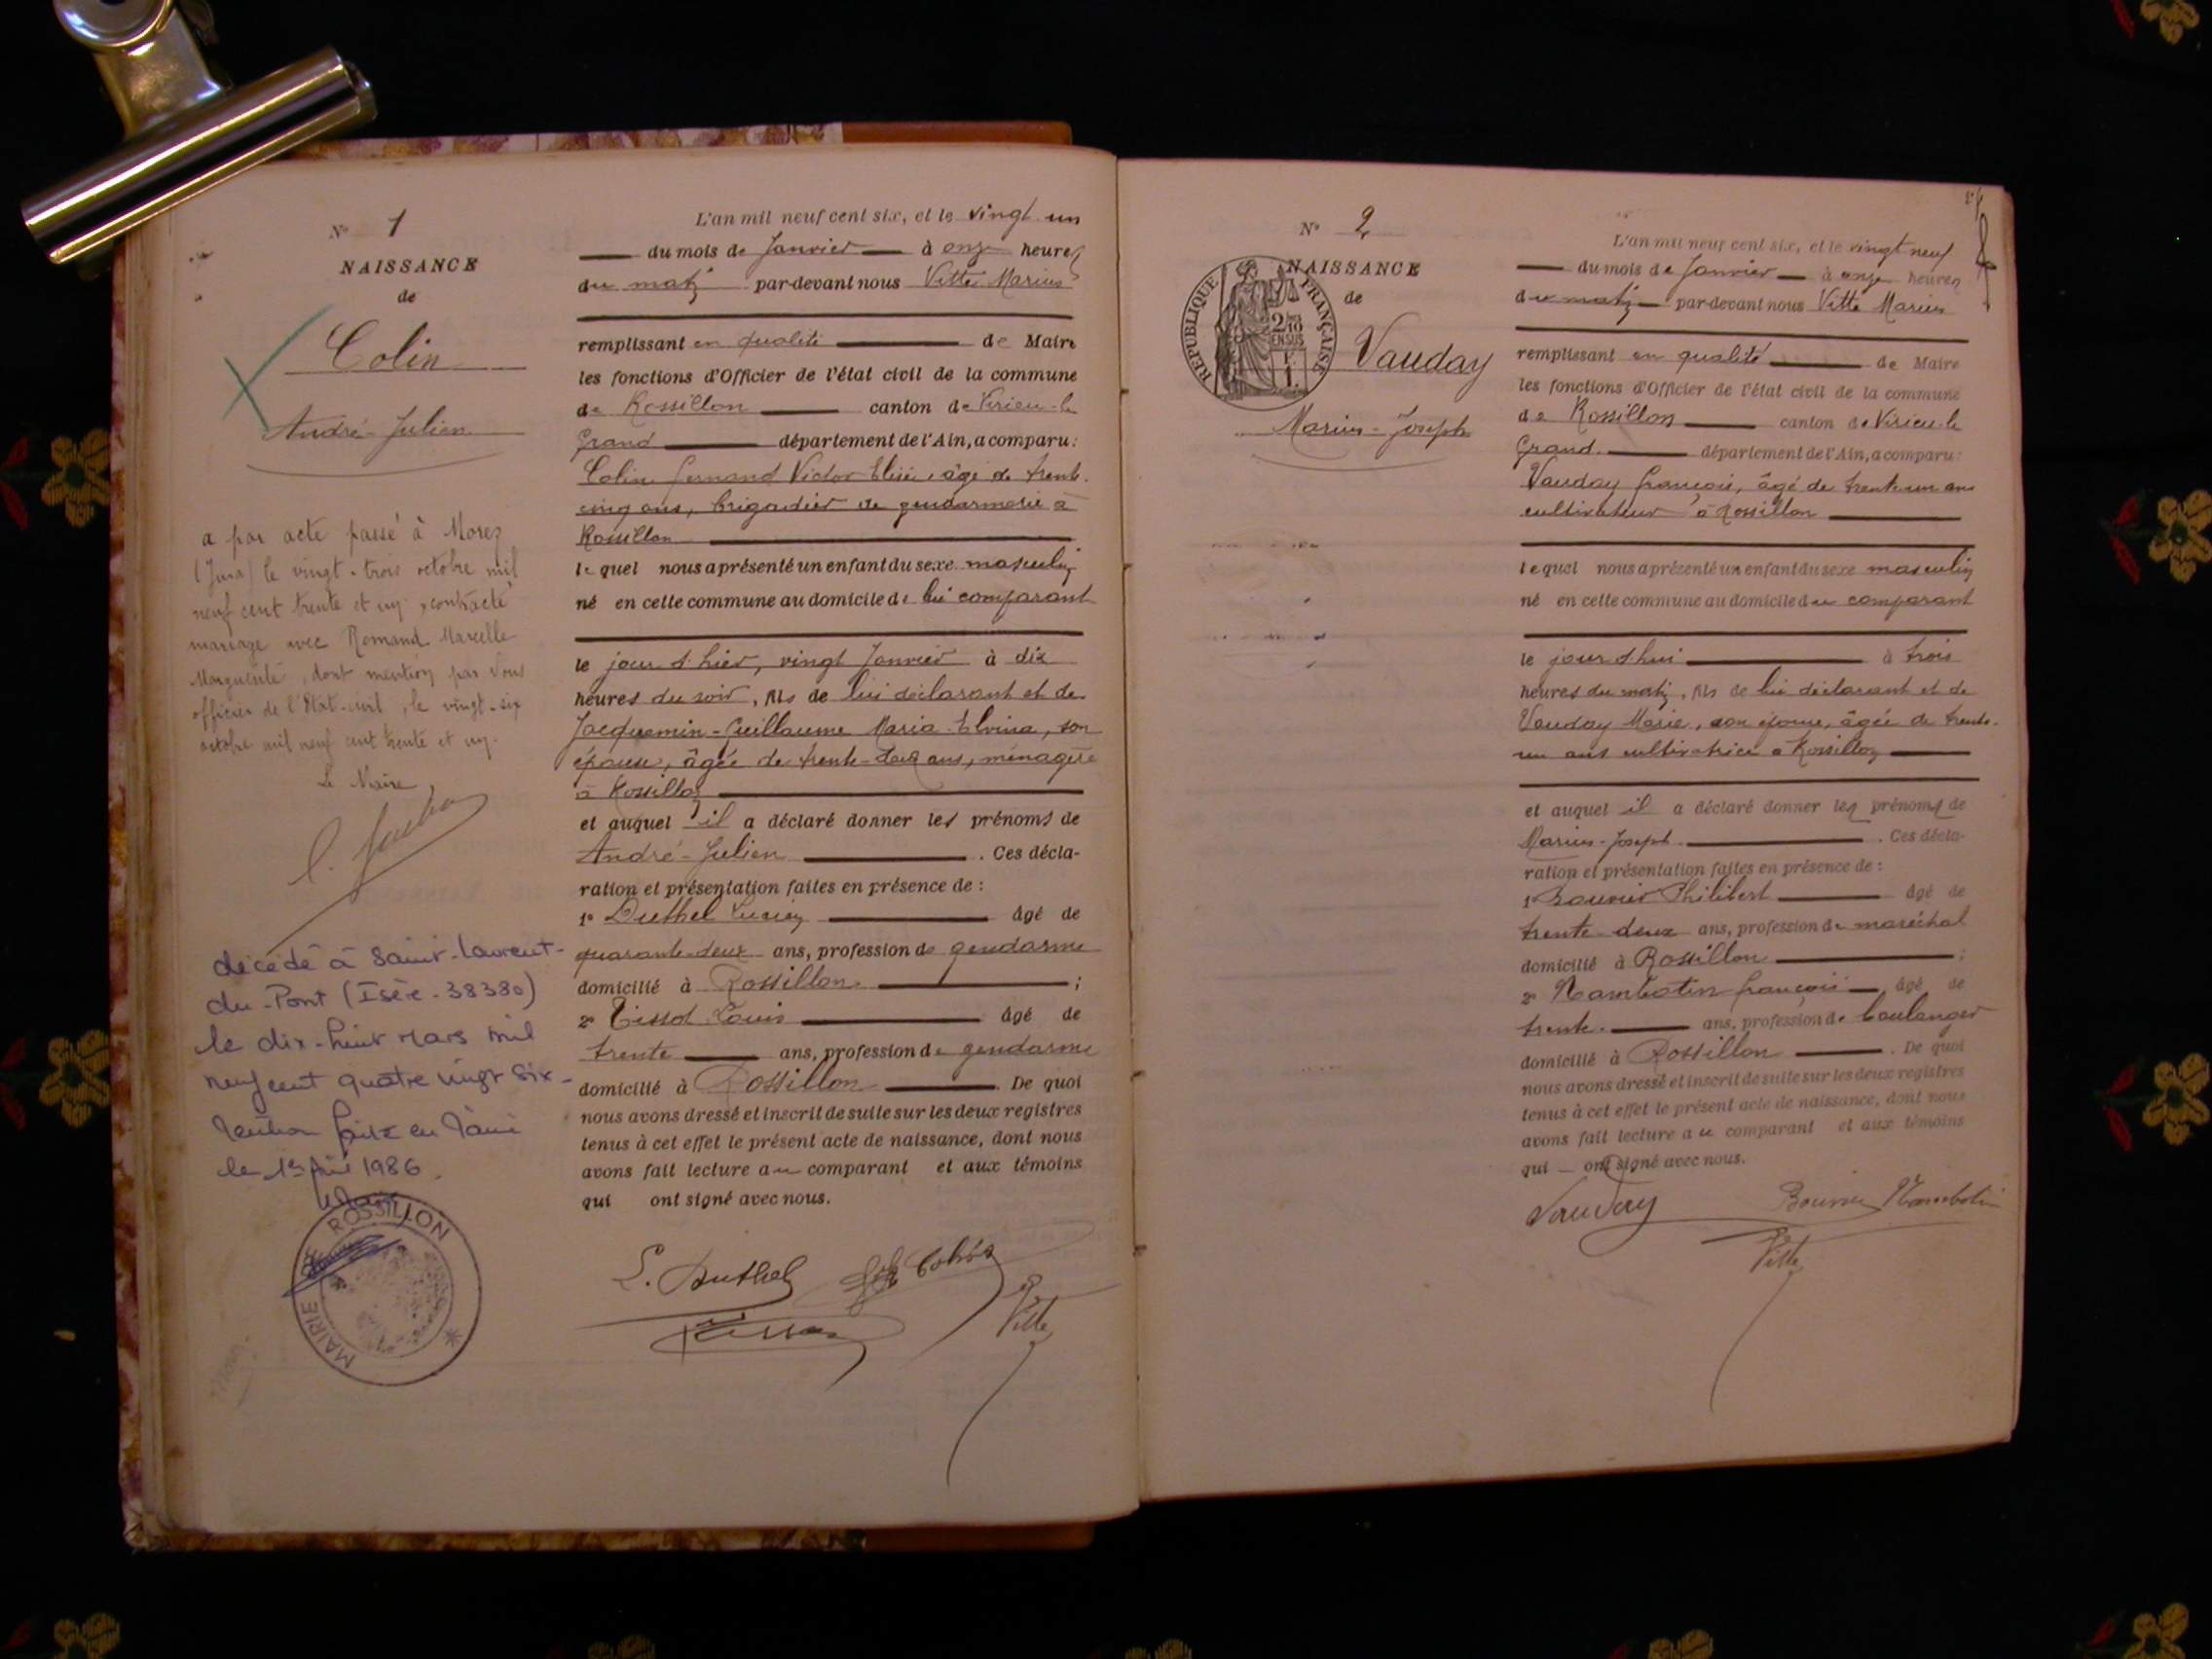 N° 1
NAISSANCE
de
Colin
André-Julien
a par acte passé à Morez
(Jura) le vingt-trois octobre mil
neuf cent trente et un, contracté
mariage avec Romand Marcelle
Marguerite, dont mention par Nous
officier de l'Etat-civil, le vingt-six
octobre mil neuf cent trente et un.
Le Maire,
décédé à Saint-Laurent-
du-Pont (Isère-38380)
le dix-huit Mars mil
neuf cent quatre vingt six-
Mention faite en Mairie
le 1er 1986.
MAIRIE ROSSILLON *
L'an mil neuf cent six, et le vingt un
du mois de Janvier à onze heures
du matin par-devant nous Vitte Marius
remplissant en qualité de Maire
les fonctions d'Officier de l'état civil de la commune
de Rossillon canton de Virieu-le
Grand département de l'Ain, a comparu:
Colin Fernand Victor Elisée, âgé de trente-
cinq ans, brigadier de gendarmerie à
Rossillon
lequel nous a présenté un enfant du sexe masculin
né en cette commune au domicile de lui comparant
le jour d'hier, vingt Janvier à dix
heures du soir, fils de lui déclarant et de
Jacquemin-Guillaume Maria-Elvina, son
épouse, âgée de trente-deux ans, ménagère
à Rossillon
et auquel il a déclaré donner les prénoms de
André-Julien. Ces décla-
ration et présentation faites en présence de:
1° Duthel Lucien âgé de
quarante-deux ans, profession de gendarme
domicilié à Rossillon;
2° Tissot Louis âgé de
trente ans, profession de gendarme
domicilié à Rossillon. De quoi
nous avons dressé et inscrit de suite sur les deux registres
tenus à cet effet le présent acte de naissance, dont nous
avons fait lecture au comparant et aux témoins
qui ont signé avec nous.
L. Duthel Colin
Tissot Vitte
N° 2
NAISSANCE
de
RÉPUBLIQUE FRANÇAISE
2/10
EN SUS
1F.
1.
Vauday
Marius-Joseph
L'an mil neuf cent six, et le vingt neuf
du mois de Janvier à onze heures
du matin par-devant nous Vitte Marius
remplissant en qualité de Maire
les fonctions d'Officier de l'état civil de la commune
de Rossillon canton de Virieu-le
Grand. département de l'Ain, a comparu:
Vauday François, âgé de trente-un ans
cultivateur à Rossillon
lequel nous a présenté un enfant du sexe masculin
né en cette commune au domicile du comparant
le jour d'hui à trois
heures du matin, fils de lui déclarant et de
Vauday Marie, son épouse, âgée de trente-
un ans cultivatrice à Rossillon
et auquel il a déclaré donner les prénoms de
Marius-Joseph. Ces décla-
ration et présentation faites en présence de:
1° Bouvier Philibert âgé de
trente deux ans, profession de maréchal
domicilié à Rossillon;
2° Nambotin François, âgé de
trente. ans, profession de boulanger
domicilié à Rossillon. De quoi
nous avons dressé et inscrit de suite sur les deux registres
tenus à cet effet le présent acte de naissance, dont nous
avons fait lecture au comparant et aux témoins
qui ont signé avec nous.
Vauday Bouvier Nambotin
Vitte